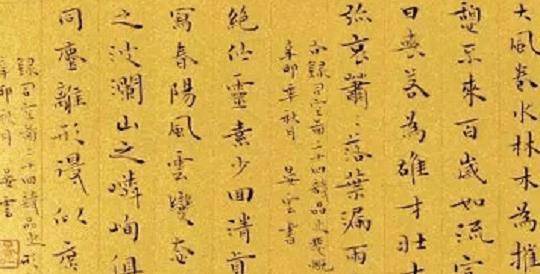 大風卷水林木為摧
憩不來百歲如流富
日喪若為雄才壯士
弥哀蕭〻落葉漏雨
右錄司空圖二十四詩品之悲慨
辛卯年秋月 晏雲書
絕佇靈素少回清真
寫春陽風雲變态
之波瀾山之嶙峋俱
同塵離形得似庶
錄司空圖二十四詩品之形
辛卯秋月 晏雲